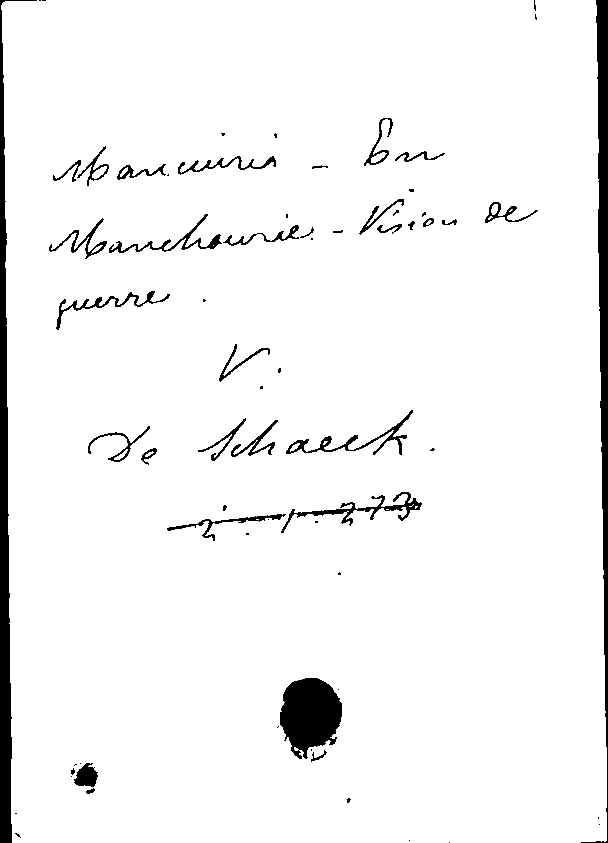 Manciuria - En
Manchourie - Vision de
guerre.
V.
De Schaeck.
2. 1. 273